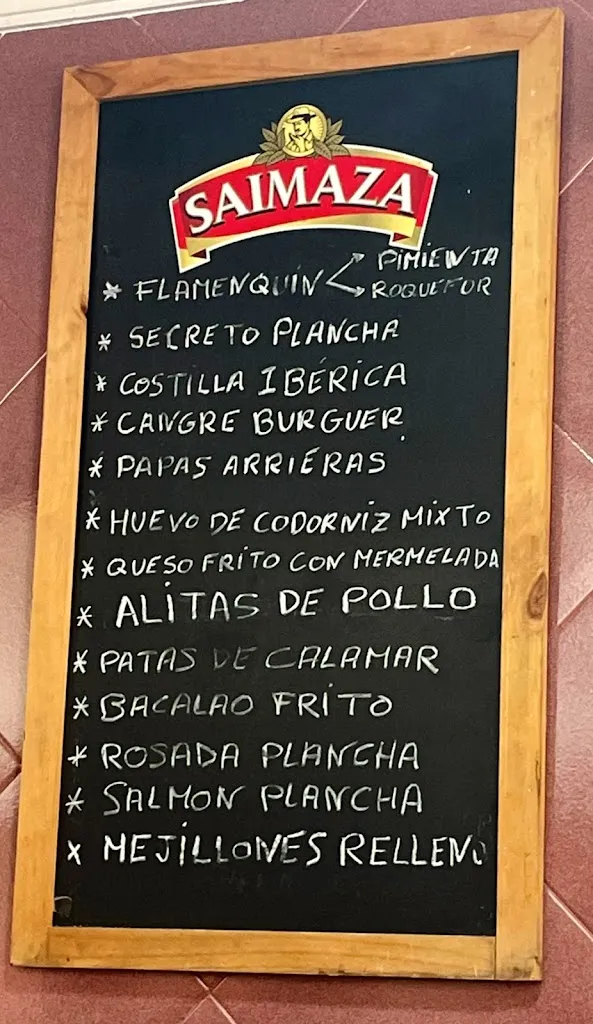 SAIMAZA
* FLAMENQUÍN PIMIENTA
ROQUEFOR
* SECRETO PLANCHA
* COSTILLA IBÉRICA
* CANGRE BURGUER
* PAPAS ARRIERAS
* HUEVO DE CODORNIZ MIXTO
* QUESO FRITO CON MERMELADA
* ALITAS DE POLLO
* PATAS DE CALAMAR
* BACALAO FRITO
* ROSADA PLANCHA
* SALMON PLANCHA
x MEJILLONES RELLENO